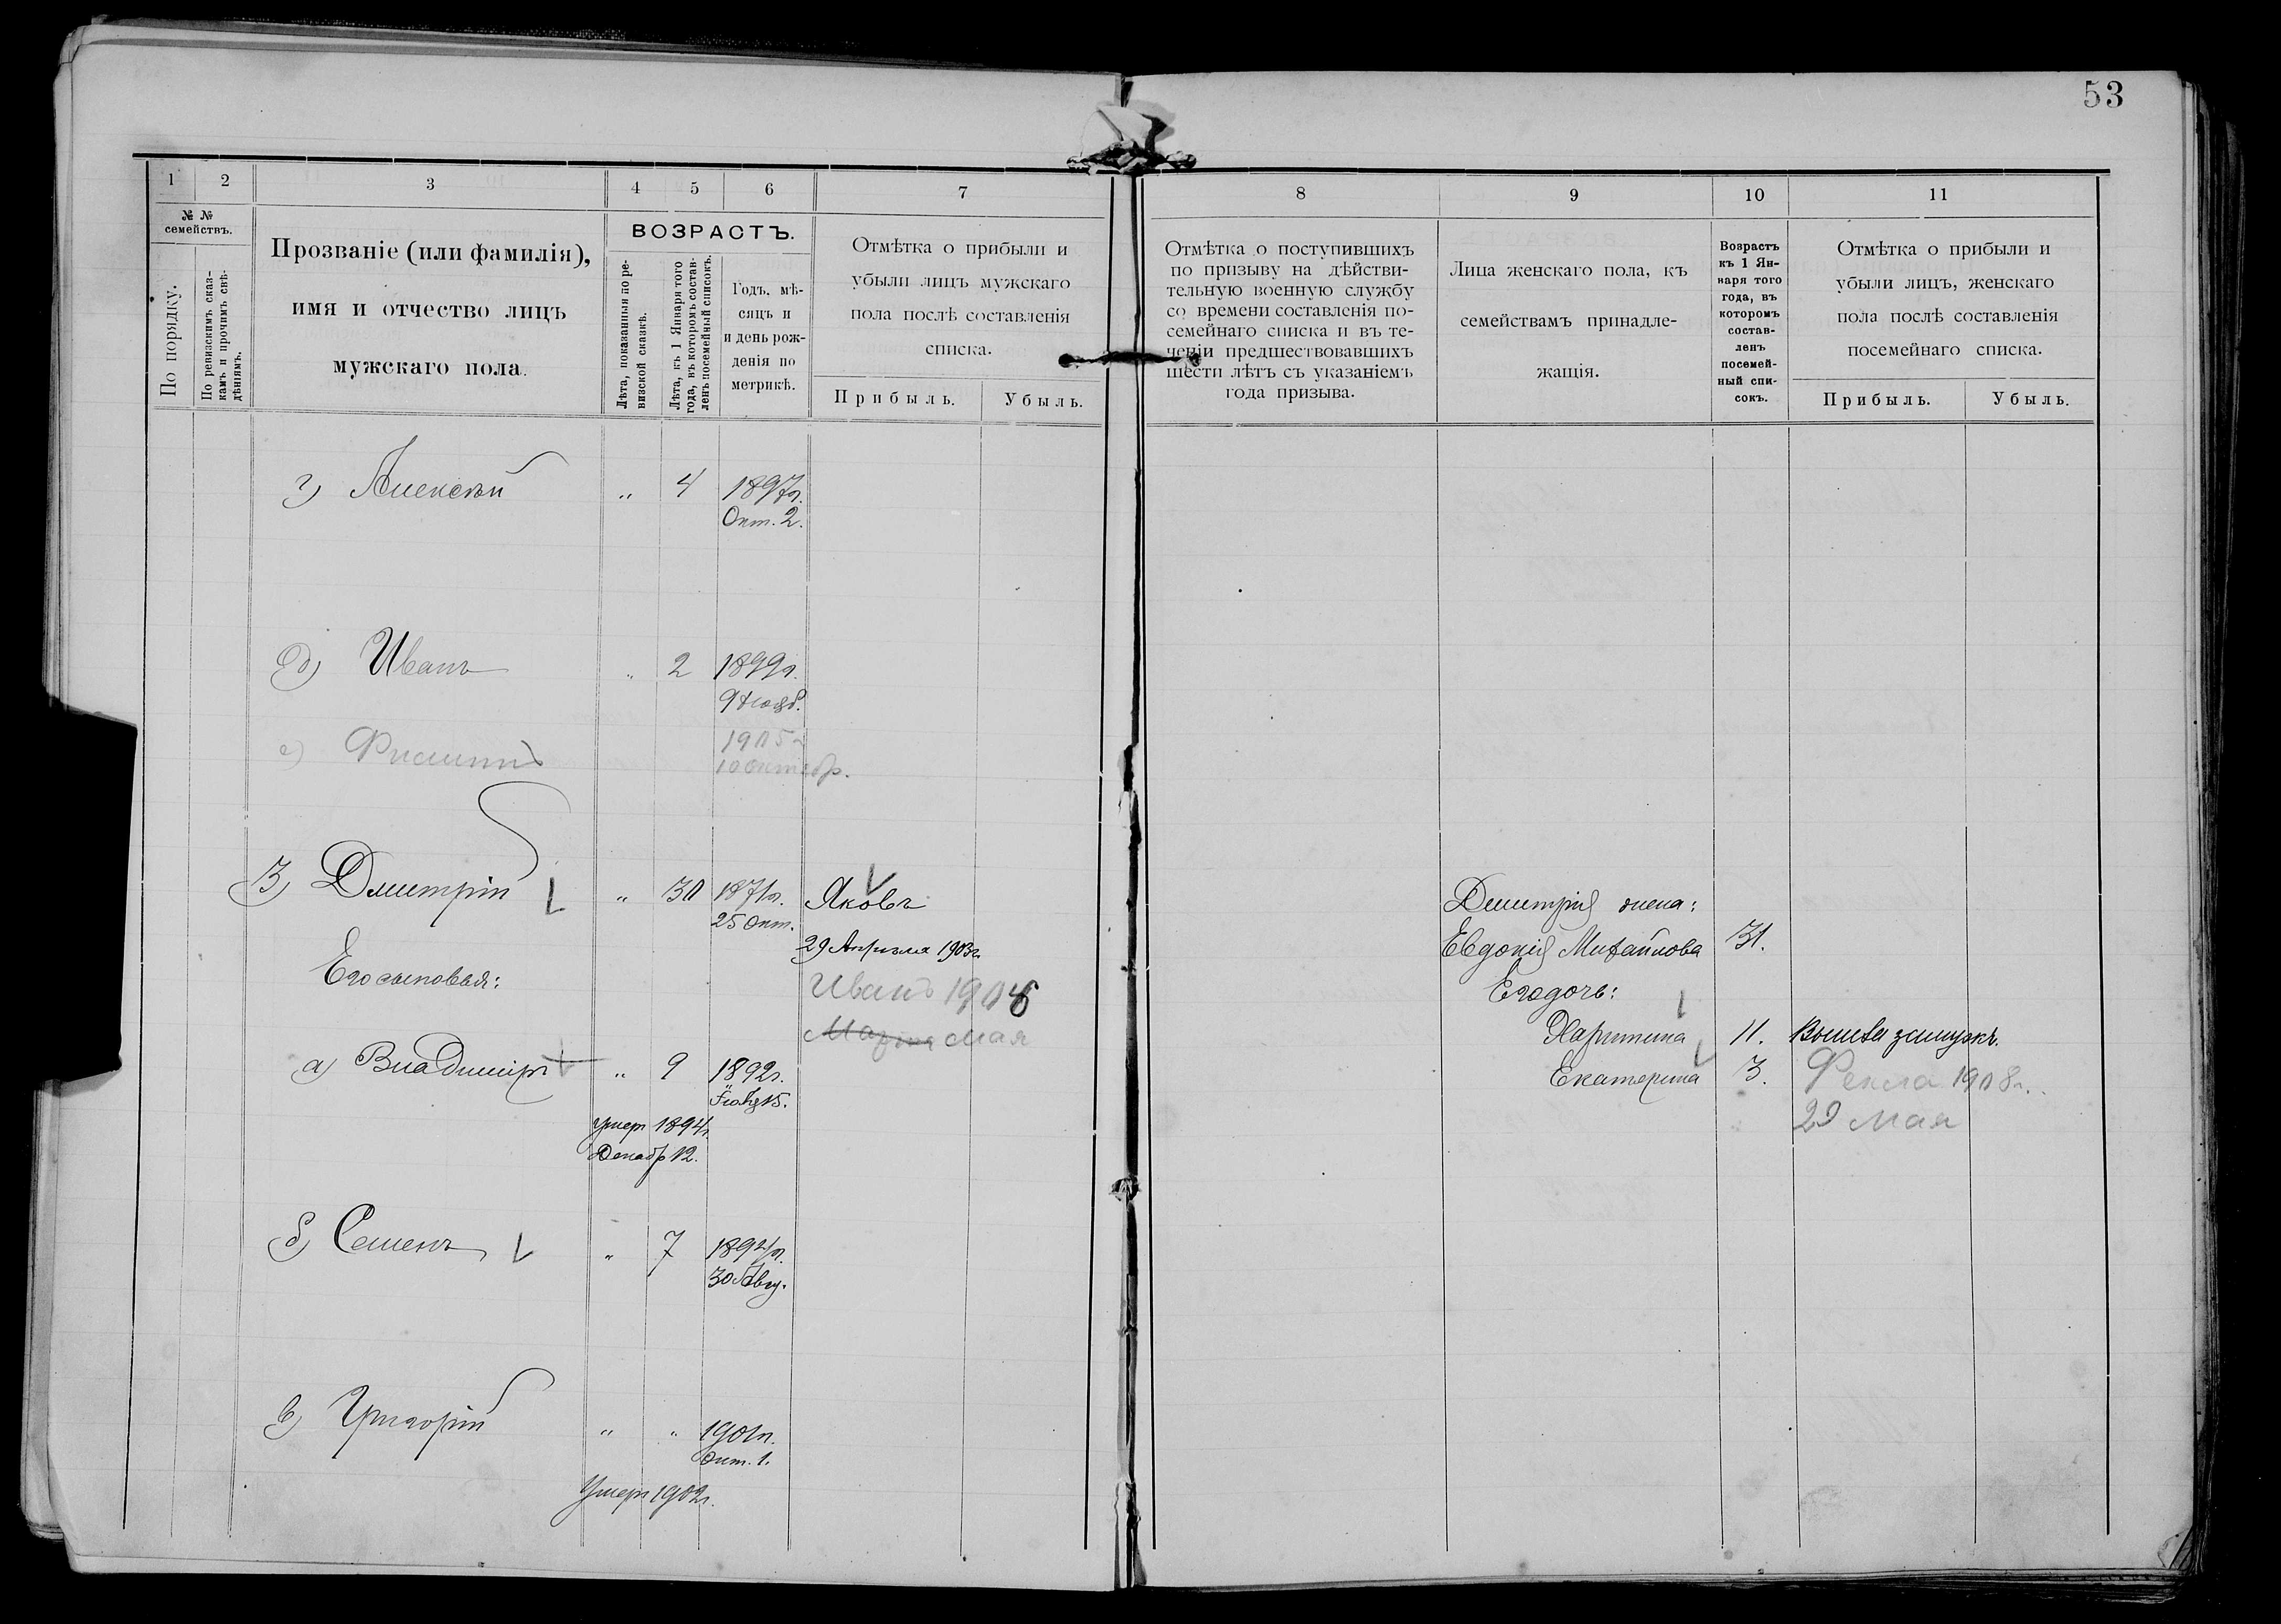 53
1 2 3 4 5 6 7
№ № семействъ.
По порядку.
По ревизскимъ сказ-
камъ и прочимъ свѣ-
дѣніямъ.
Прозваніе (или фамилія),
имя и отчество лицъ
мужскаго пола.
ВОЗРАСТЪ.
Лѣта, показанныя по ре-
визской сказкѣ.
Лѣта, къ 1 Января того
года, въ которомъ состав-
ленъ посемейный списокъ.
Годъ, мѣ-
сяцъ и
и день рож-
денія по
метрикѣ.
Отмѣтка о прибыли и
убыли лицъ мужскаго
пола послѣ составленія
списка.
Прибыль. Убыль.
г) Алексѣй " 4 1897г.
Окт. 2.
д) Иванъ " 2 1899г.
9 Нояб.
е) Филиппъ 1905г
10 октябр.
3) Дмитрій " 30 1871г. Яковъ
25 Окт.
29 Апрѣля 1903г.
Его сыновья: Иванъ 1906
Марта Мая
а) Владиміръ " 9 1892г.
Іюля 15.
Умеръ 1894г.
Декабр 12.
б) Семенъ " 7 1894г.
30 Авгу.
в) Григорій " " 1901г.
Окт. 1.
Умеръ 1902г.
8 9 10 11
Отмѣтка о поступившихъ
по призыву на дѣйстви-
тельную военную службу
со времени составленія по-
семейнаго списка и въ те-
ченіи предшествовавшихъ
шести лѣтъ съ указаніемъ
года призыва.
Лица женскаго пола, къ
семействамъ принадле-
жащія.
Возрастъ
къ 1 Ян-
варя того
года, въ
которомъ
состав-
ленъ
посемей-
ный спи-
сокъ.
Отмѣтка о прибыли и
убыли лицъ, женскаго
пола послѣ составленія
посемейнаго списка.
Прибыль. Убыль.
Дмитрія жена:
Евдокія Михайлова 31.
Его дочь:
Харитина 11. Вышла замужъ.
Екатерина 3. Фекла 1908г.
29 Мая